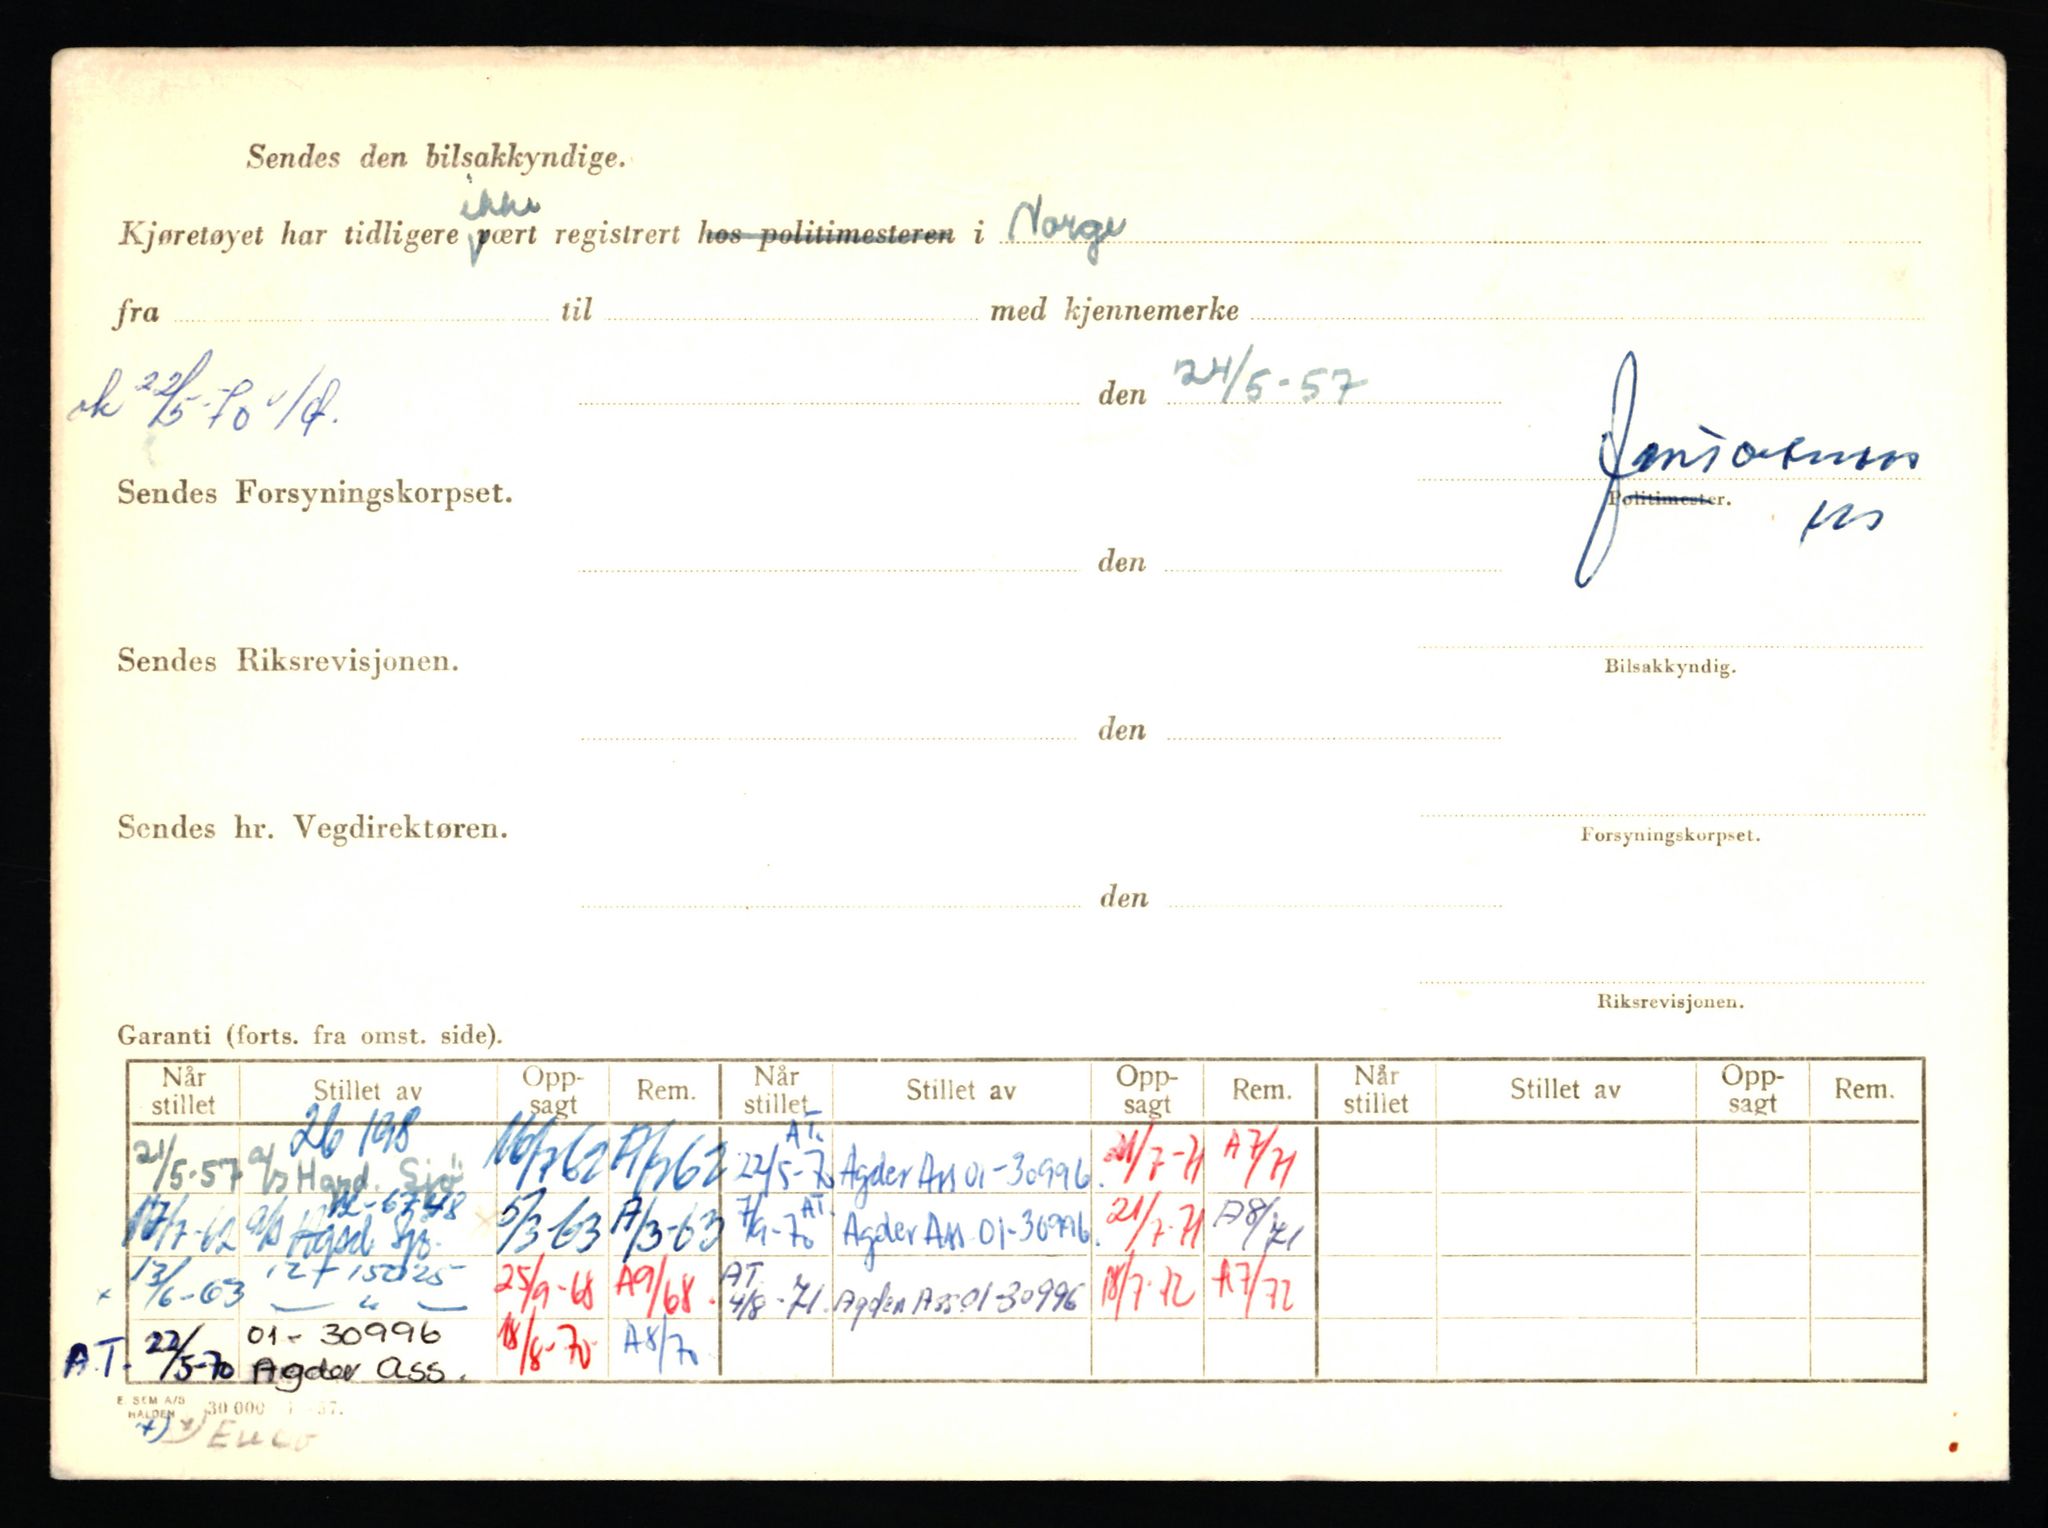 Sendes den bilsakkyndige.
ikke
Kjøretøyet har tidligere vært registrert hos politimesteren i Norge
fra til med kjennemerke
ok 22/5-70
den 24/5-57
Sendes Forsyningskorpset.
Politimester.
den
Sendes Riksrevisjonen.
Bilsakkyndig.
den
Sendes hr. Vegdirektøren.
Forsyningskorpset.
den
Riksrevisjonen.
Garanti (forts. fra omst. side).
Når stillet Stillet av Oppsagt Rem. Når stillet Stillet av Oppsagt Rem. Når stillet Stillet av Oppsagt Rem.
26198 A.T.
21/5-57 a/s Hand. Sjø 16/7 62 A/7 62 22/5-70 Agder Ass 01-30996. 21/7-71 A7/71
17/7-62 a/s Sjø. 5/3-63 A/3-63 7/9-70 AT. Agder Ass 01-30996. 21/7-71 A8/71
x 13/6-63 — " — 25/9-68 A9/68. AT 4/8-71. Agder Ass 01-30996 18/7-72 A7/72
A.T. 22/5-70 01-30996 18/8-70 A8/70
Agder Ass.
E. SEM A/S
HALDEN 30 000 57.
x)